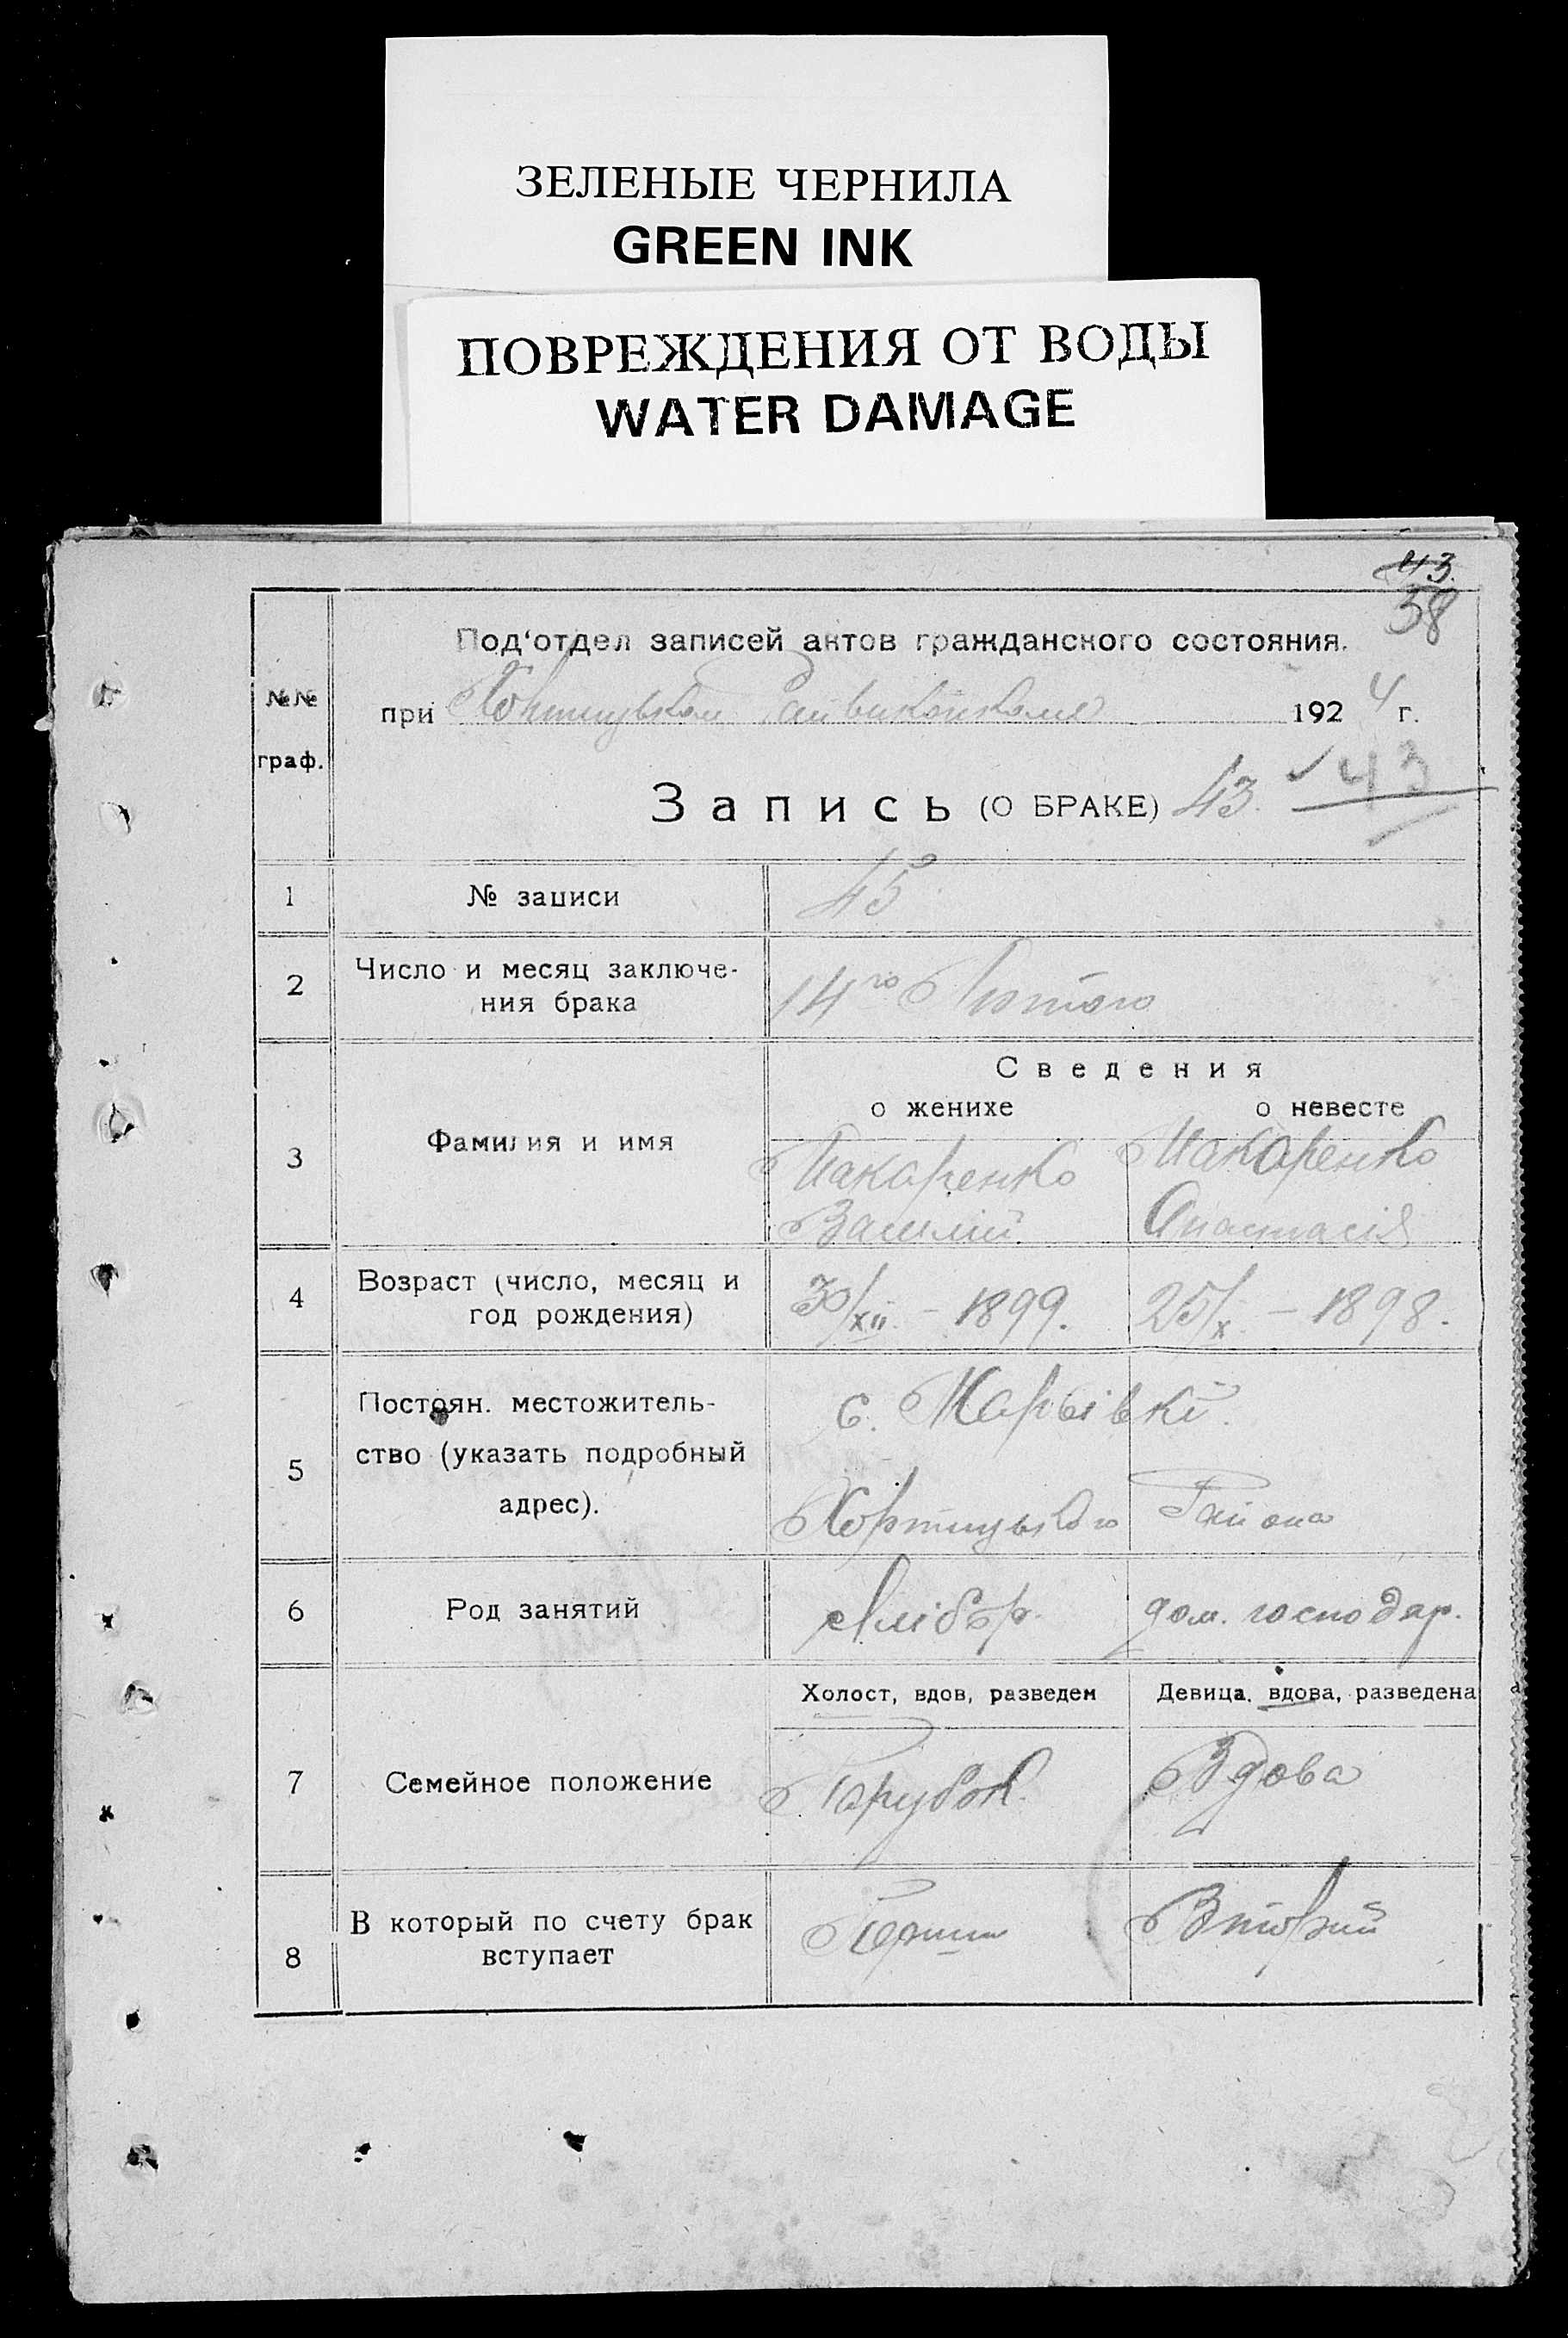 ЗЕЛЕНЫЕ ЧЕРНИЛА
GREEN INK
ПОВРЕЖДЕНИЯ ОТ ВОДЫ
WATER DAMAGE
43.
58
№№ граф.
Под‘отдел записей актов гражданского состояния.
при Хортицьком Райвиконкоме 1924 г.
Запись (О БРАКЕ) 43. 43
1 № записи 45
2 Число и месяц заключе-
ния брака 14го Лютого
Сведения
о женихе о невесте
3 Фамилия и имя Макаренко Макаренко
Василий Анастасія
4 Возраст (число, месяц и
год рождения) 30/XII - 1899. 25/X - 1898.
5 Постоян. местожитель-
ство (указать подробный
адрес).
с. Марьівкі.
Хортицького Района
6 Род занятий Хлібор. дом. господар.
Холост, вдов, разведен Девица, вдова, разведена
7 Семейное положение Парубок. Вдова
8 В который по счету брак
вступает Перший Вторий